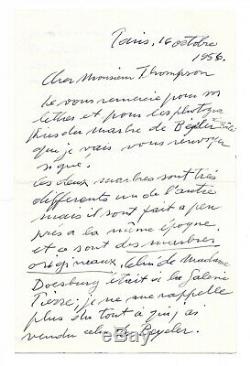 Paris, 16 octobre
1956.
Cher Monsieur Thompson
Je vous remercie pour vos
lettres et pour les photogra
phies du marbre de Beyeler
que je vais vous renvoyer
signés.
Les deux marbres sont très
différents un de l'autre
mais il sont fait a peu
près a la même époque.
et ce sont des marbres
originaux. Celui de Madame
Doesburg était à la Galerie
Pierre. je ne me rappelle
plus du tout à qui j'ai
vendu celui de Beyeler.
ebay